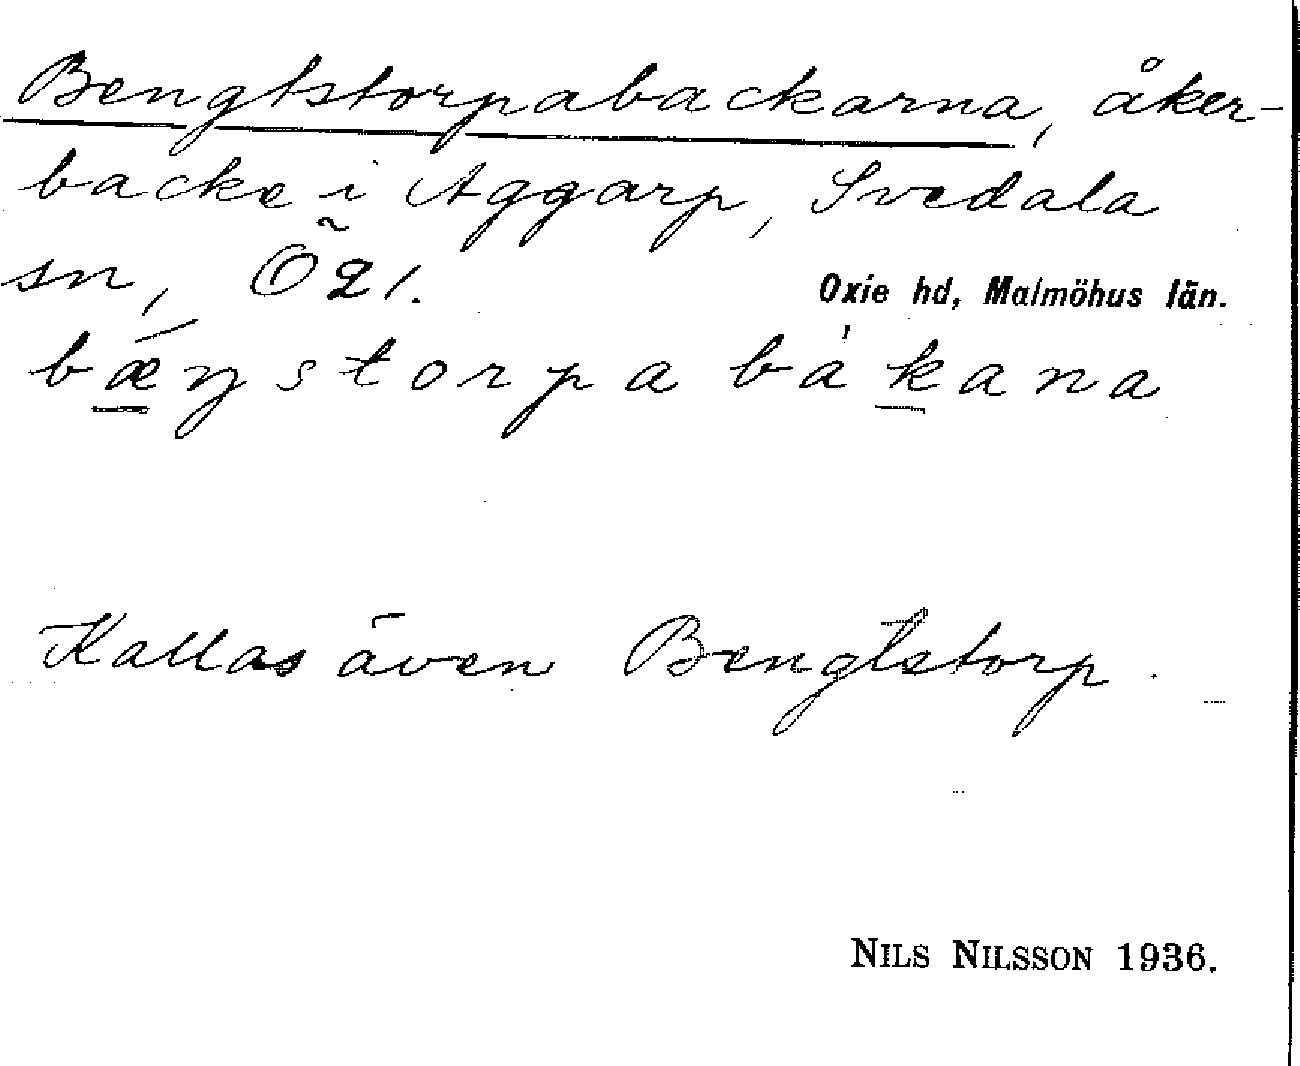 Bengtstorpabackarna, åker-
backe i Aggarp, Svedala
sn, Ö 21.
Oxie hd, Malmöhus län.
bæŋstorpa bákana
Kallas även Bengtstorp.
NILS NILSSON 1936.